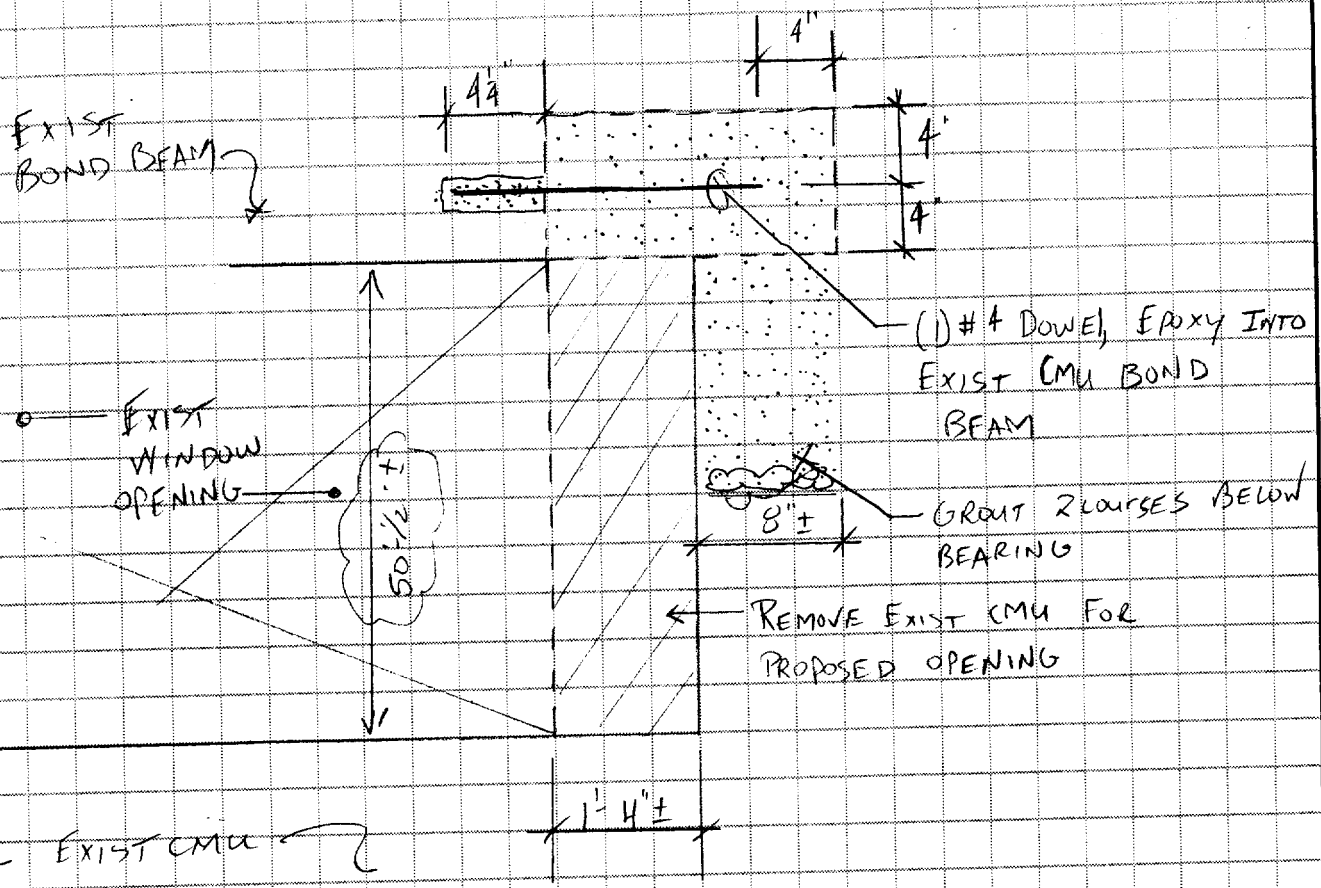 4"
4¼"
EXIST
BOND BEAM
4"
4"
(1) #4 DOWEL, EPOXY INTO
EXIST CMU BOND
BEAM
EXIST
WINDOW
OPENING
50-1/2" ±
8"±
GROUT 2 COURSES BELOW
BEARING
REMOVE EXIST CMU FOR
PROPOSED OPENING
1'-4"±
EXIST CMU